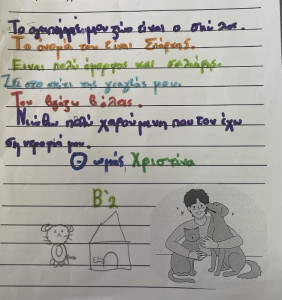 Το αγαπημένο μου ζώο είναι ο σκύλος.
Το όνομα του είναι Σπόρκης.
Είναι πολύ όμορφος και σκληρός.
Ζει στο σπίτι της γιαγιάς μου.
Τον βγάζω βόλτες.
Νιώθω πολύ χαρούμενη που τον έχω
συντροφιά μου.
Θωμαΐς, Χριστίνα
Β'2